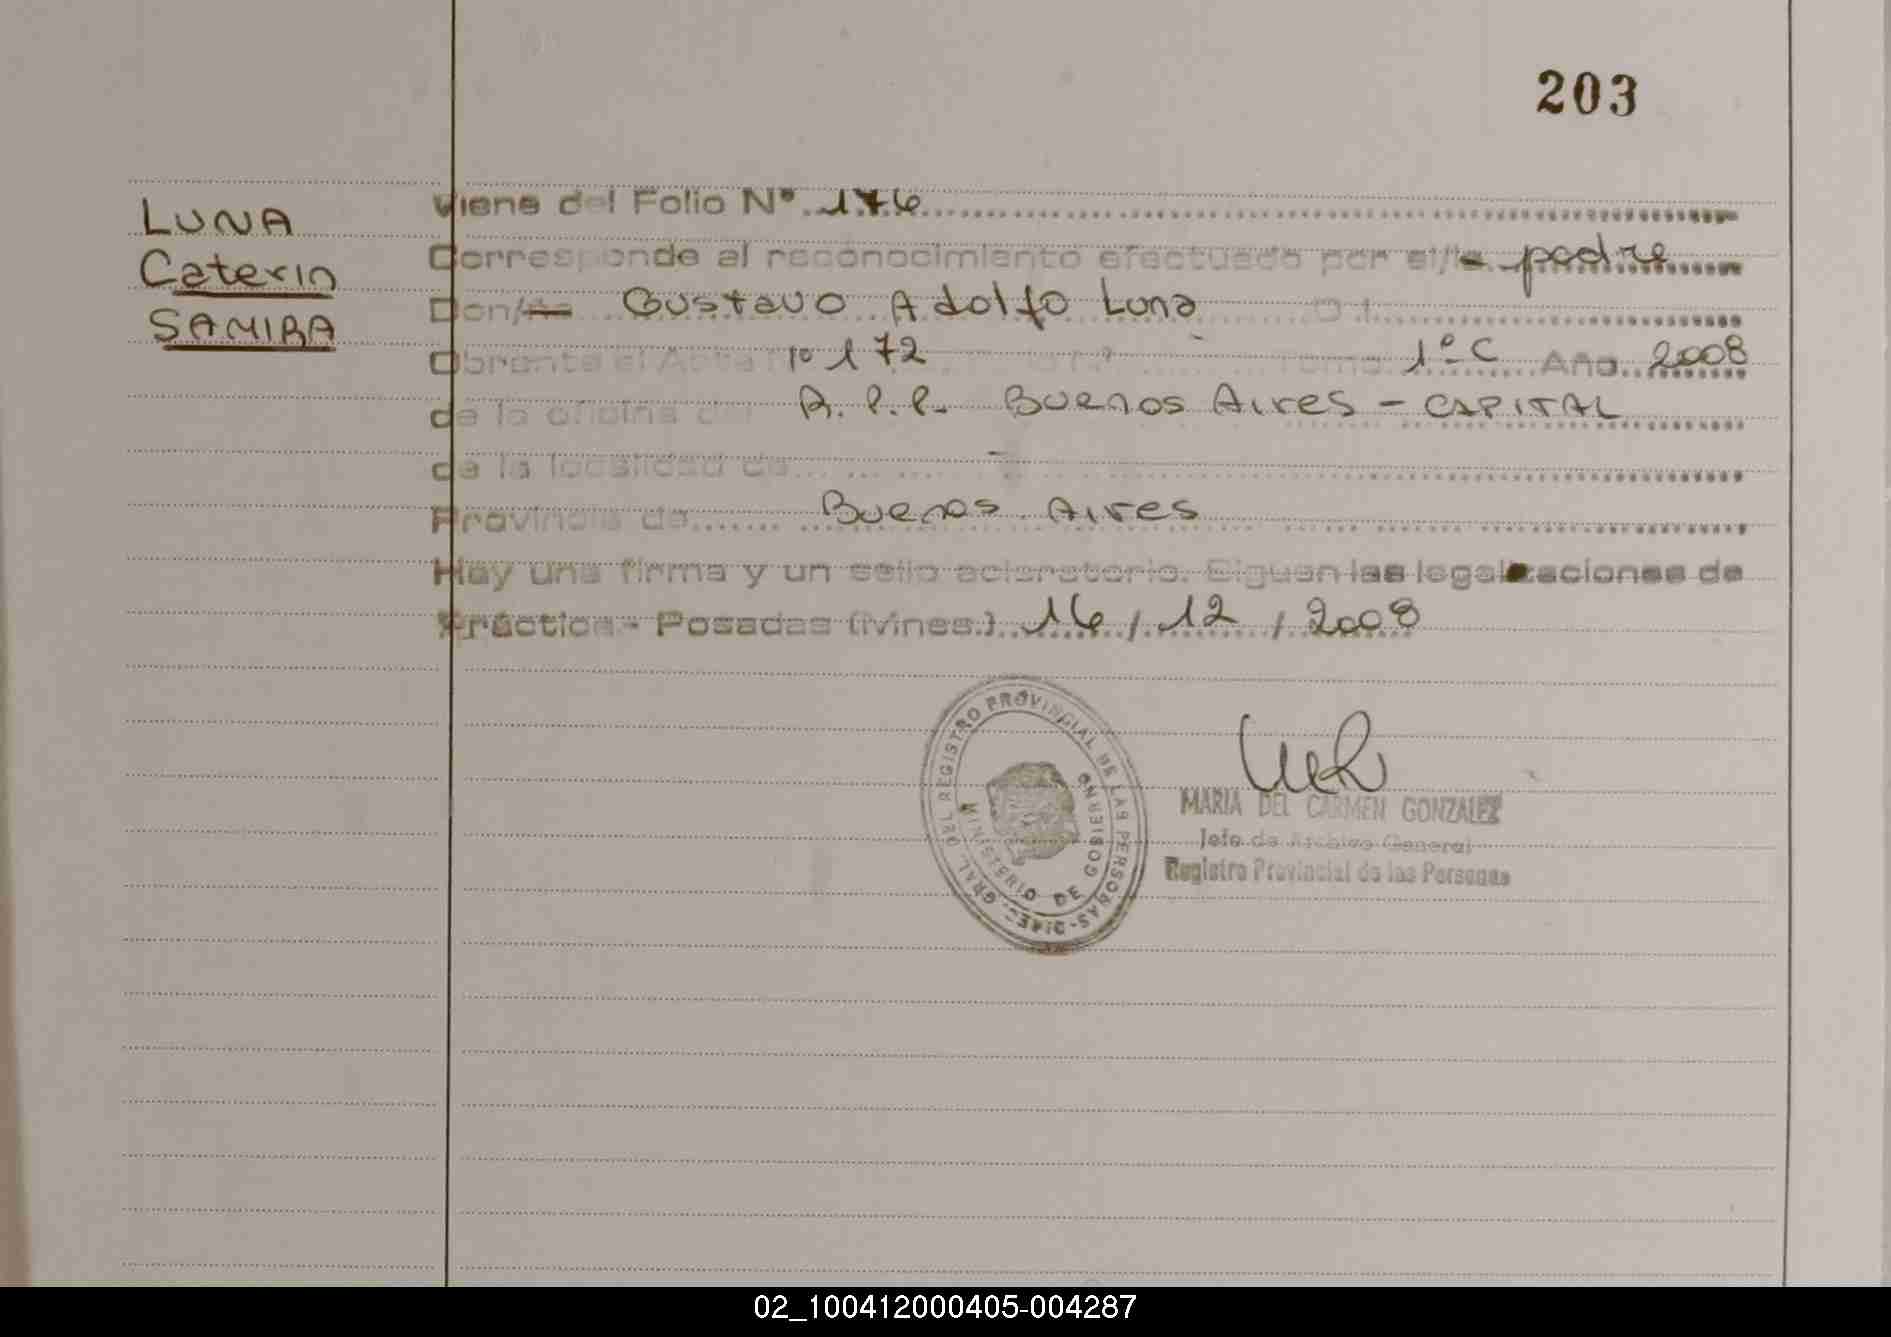 203
LUNA
Caterin
SAMIRA
Viene del Folio Nº 176
Corresponde al reconocimiento efectuado por el/la padre
Don/ña Gustavo Adolfo Luna D.I.
Obrante el Acta Nº 172 Tomo 1º C Año 2008
de la oficina del R.P.P. Buenos Aires - CAPITAL
de la localidad de
Provincia de Buenos Aires
Hay una firma y un sello aclaratorio. Siguen las legalizaciones de
Práctica - Posadas (Mnes.) 16 / 12 / 2008
DEL REGISTRO PROVINCIAL DE LAS PERSONAS - DIREC. GRAL.
MINISTERIO DE GOBIERNO
MARIA DEL CARMEN GONZALEZ
Jefe de Archivo General
Registro Provincial de las Personas
02_100412000405-004287